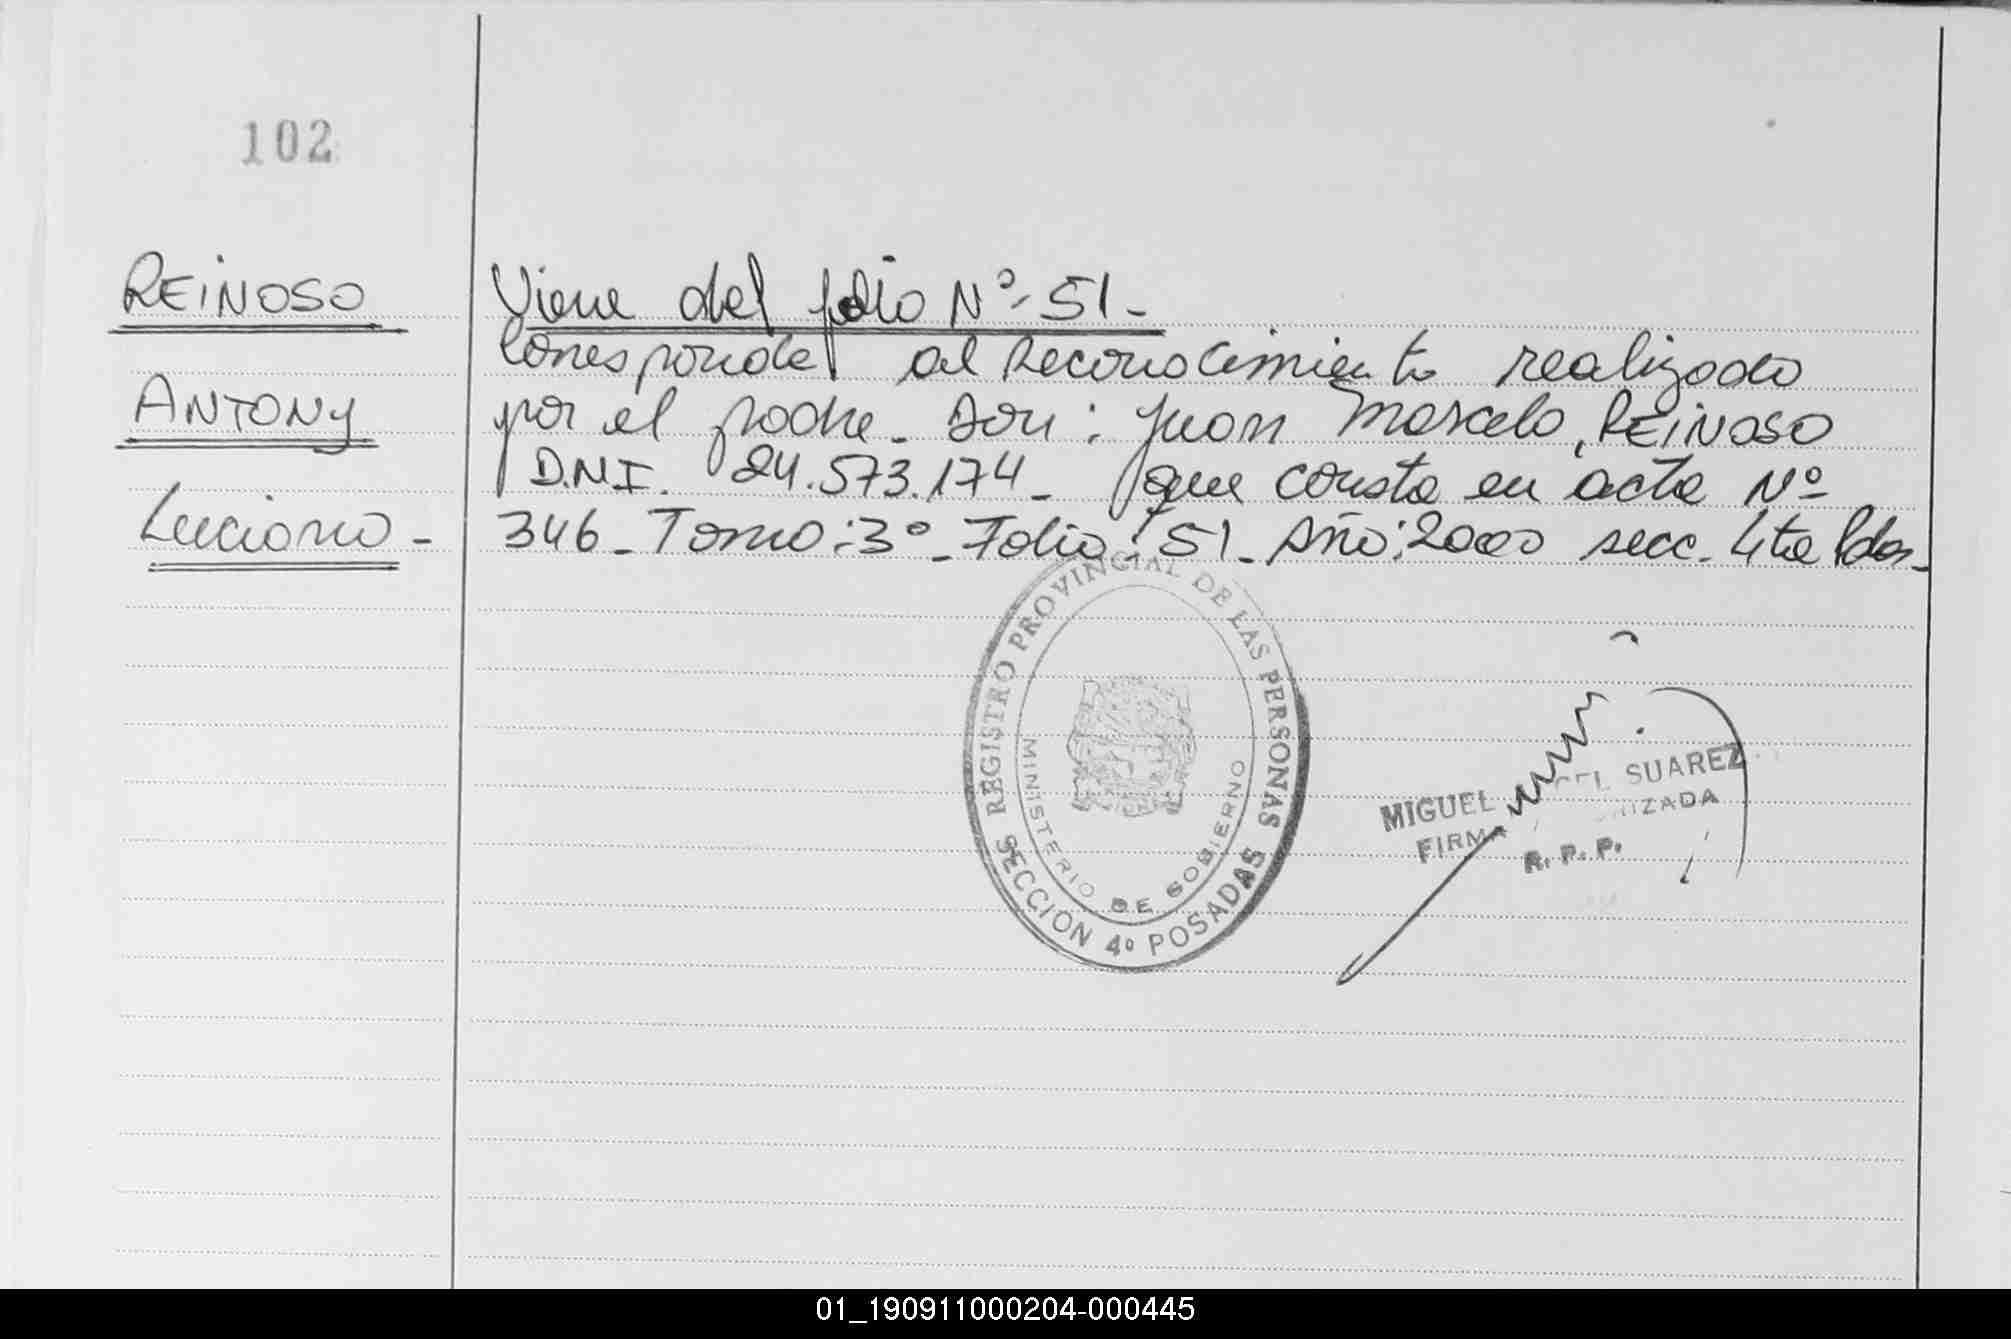 102
REINOSO
ANTONY
Luciano -
Viene del folio Nº 51 -
Corresponde al Reconocimiento realizado
por el padre - Don : Juan Marcelo, REINOSO
D.N.I. 24.573.174 - que consta en acta Nº
346 - Tomo : 3º - Folio : 51 - Año : 2000 secc. 4ta Pdas -
REGISTRO PROVINCIAL DE LAS PERSONAS
MINISTERIO DE GOBIERNO
SECCION 4º POSADAS
MIGUEL SUAREZ
FIRMA
R. P. P.
01_190911000204-000445